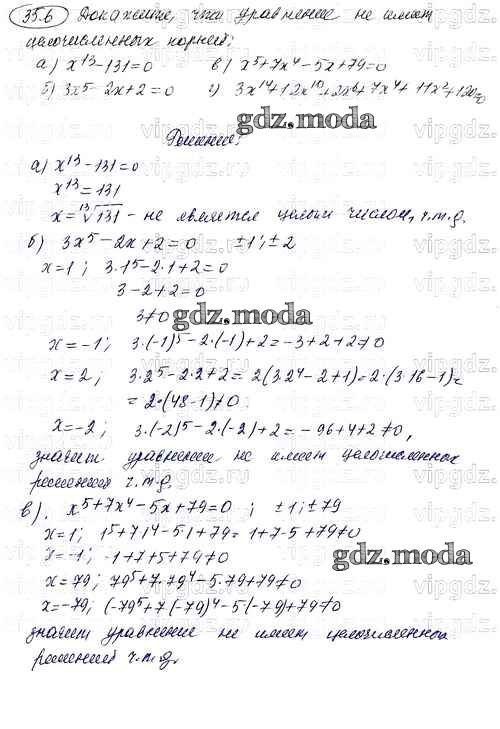 35.6 Докажите, что уравнение не имеет
целочисленных корней:
а) x¹³-131=0 в) x⁵+7x⁴-5x+79=0
б) 3x⁵-2x+2=0 г) 3x¹⁴+12x¹⁰+2x⁶+7x⁴+11x²+120=0
gdz.moda
Решение:
а) x¹³-131=0
x¹³=131
x=¹³√131 - не является целым числом, ч.т.д.
б) 3x⁵-2x+2=0 ±1; ±2
x=1; 3·1⁵-2·1+2=0
3-2+2=0
3≠0 gdz.moda
x=-1; 3·(-1)⁵-2·(-1)+2=-3+2+2≠0
x=2; 3·2⁵-2·2+2=2(3·2⁴-2+1)=2·(3·16-1)=
=2·(48-1)≠0.
x=-2; 3·(-2)⁵-2·(-2)+2=-96+4+2≠0,
значит уравнение не имеет целочисленных
решений ч.т.д.
в). x⁵+7x⁴-5x+79=0; ±1; ±79
x=1; 1⁵+7·1⁴-5·1+79=1+7-5+79≠0
x=-1; -1+7+5+79≠0
gdz.moda
x=79; 79⁵+7·79⁴-5·79+79≠0
x=-79; (-79⁵+7(-79)⁴-5(-79)+79≠0
значит уравнение не имеет целочисленных
решений ч.т.д.